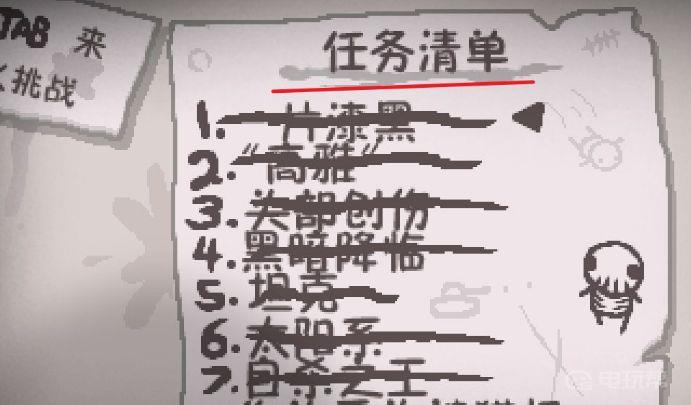 TAB 来
挑战
任务清单
1. 一片漆黑
2. “高雅”
3. 头部创伤
4. 黑暗降临
5. 坦克
6. 太阳系
7. 自杀之王
电玩帮